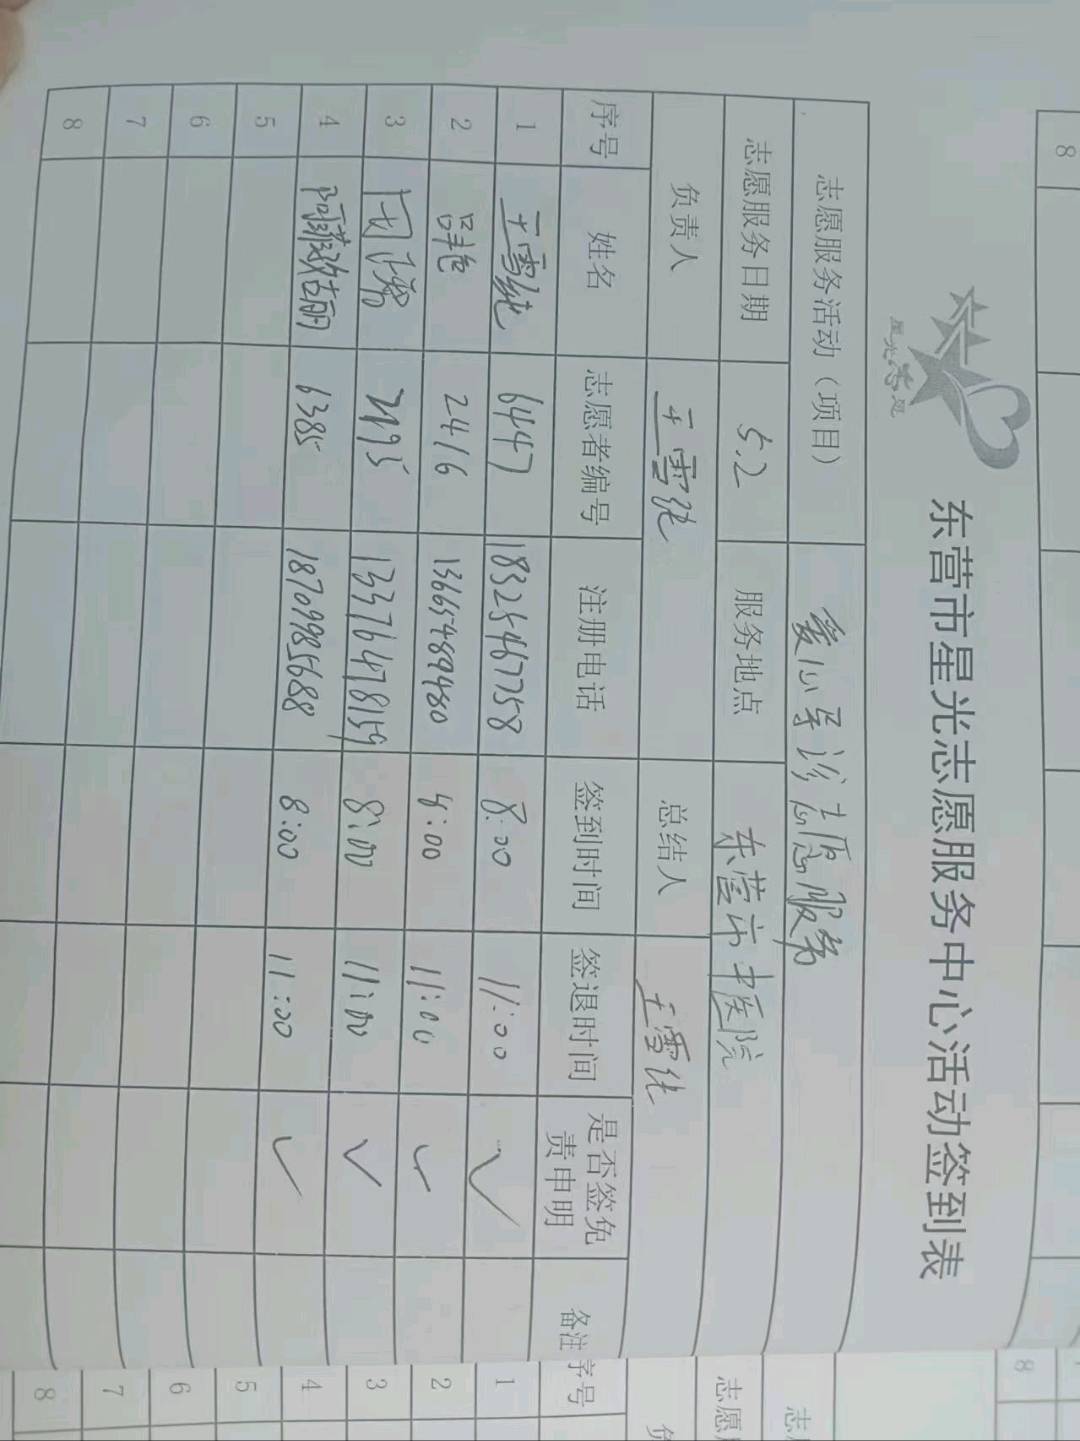 东营市星光志愿服务中心活动签到表
志愿服务活动（项目） 爱心导诊志愿服务
志愿服务日期 5.2 服务地点 东营市中医院
负责人 王雪纯 总结人 王雪纯
序号 姓名 志愿者编号 注册电话 签到时间 签退时间 是否签免责申明 备注
1 王雪纯 6447 18325467758 8:00 11:00 ✓
2 吕艳 2416 13665489480 8:00 11:00 ✓
3 13376478159 8:00 11:00 ✓
4 6385 18709985688 8:00 11:00 ✓
5
6
7
8
8
8
志
志愿
负
序号
1
2
3
4
5
6
7
8